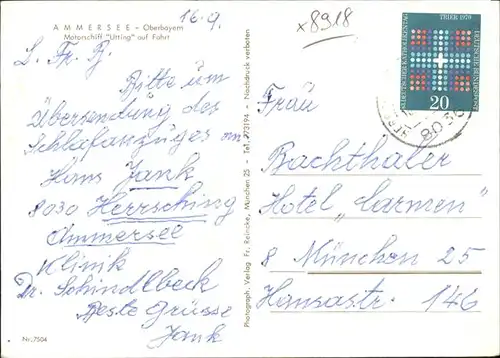 AMMERSEE - Oberbayern
Motorschiff "Utting" auf Fahrt
16.9.
x8918
L. Fr. B.
Bitte um
Übersendung des
Schlafanzuges an
Hans Jank
8030 Herrsching
Ammersee
Klinik
Dr. Schindlbeck
Beste Grüsse
Jank
Nr. 7504
Photograph. Verlag Fr. Reincke, München 25 - Tel. 773194 - Nachdruck verboten
TRIER 1970
DEUTSCHE BUNDESPOST
20
8036
Frau
Bachthaler
Hotel „Carmen"
8 München 25
Hansastr. 146